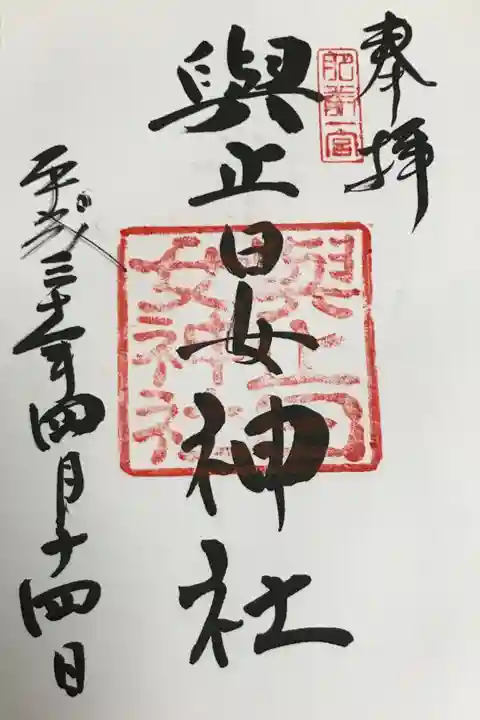 奉拝
肥前一宮
與止日女神社
與止日
女神社
平成三十一年四月十四日